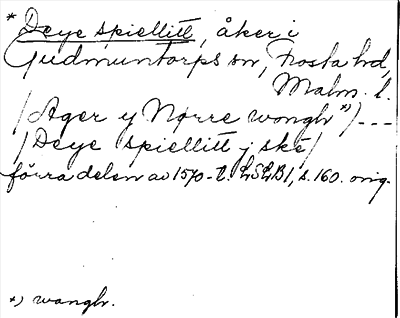 * Deye spiellitt, åker i
Gudmuntorps sn, Frosta hd,
Malm. l.
/Ager y Nørre wongh *)/---
/Deye spiellitt j ske/
förra delen av 1570-t. LSLB1, s. 160. orig.
*) wanghr.